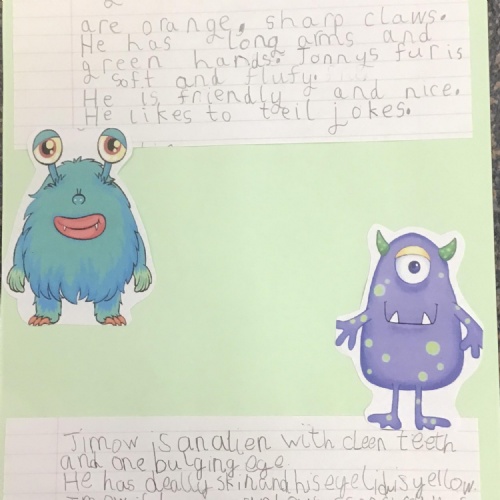 are orange, sharp claws.
He has long arms and
green hands. Jonnys fur is
soft and flufy.
He is friendly and nice.
He likes to teil jokes.
Jimow is an alien with cleen teeth
and one bulging eye.
He has deally skin and his eye lid is yellow.